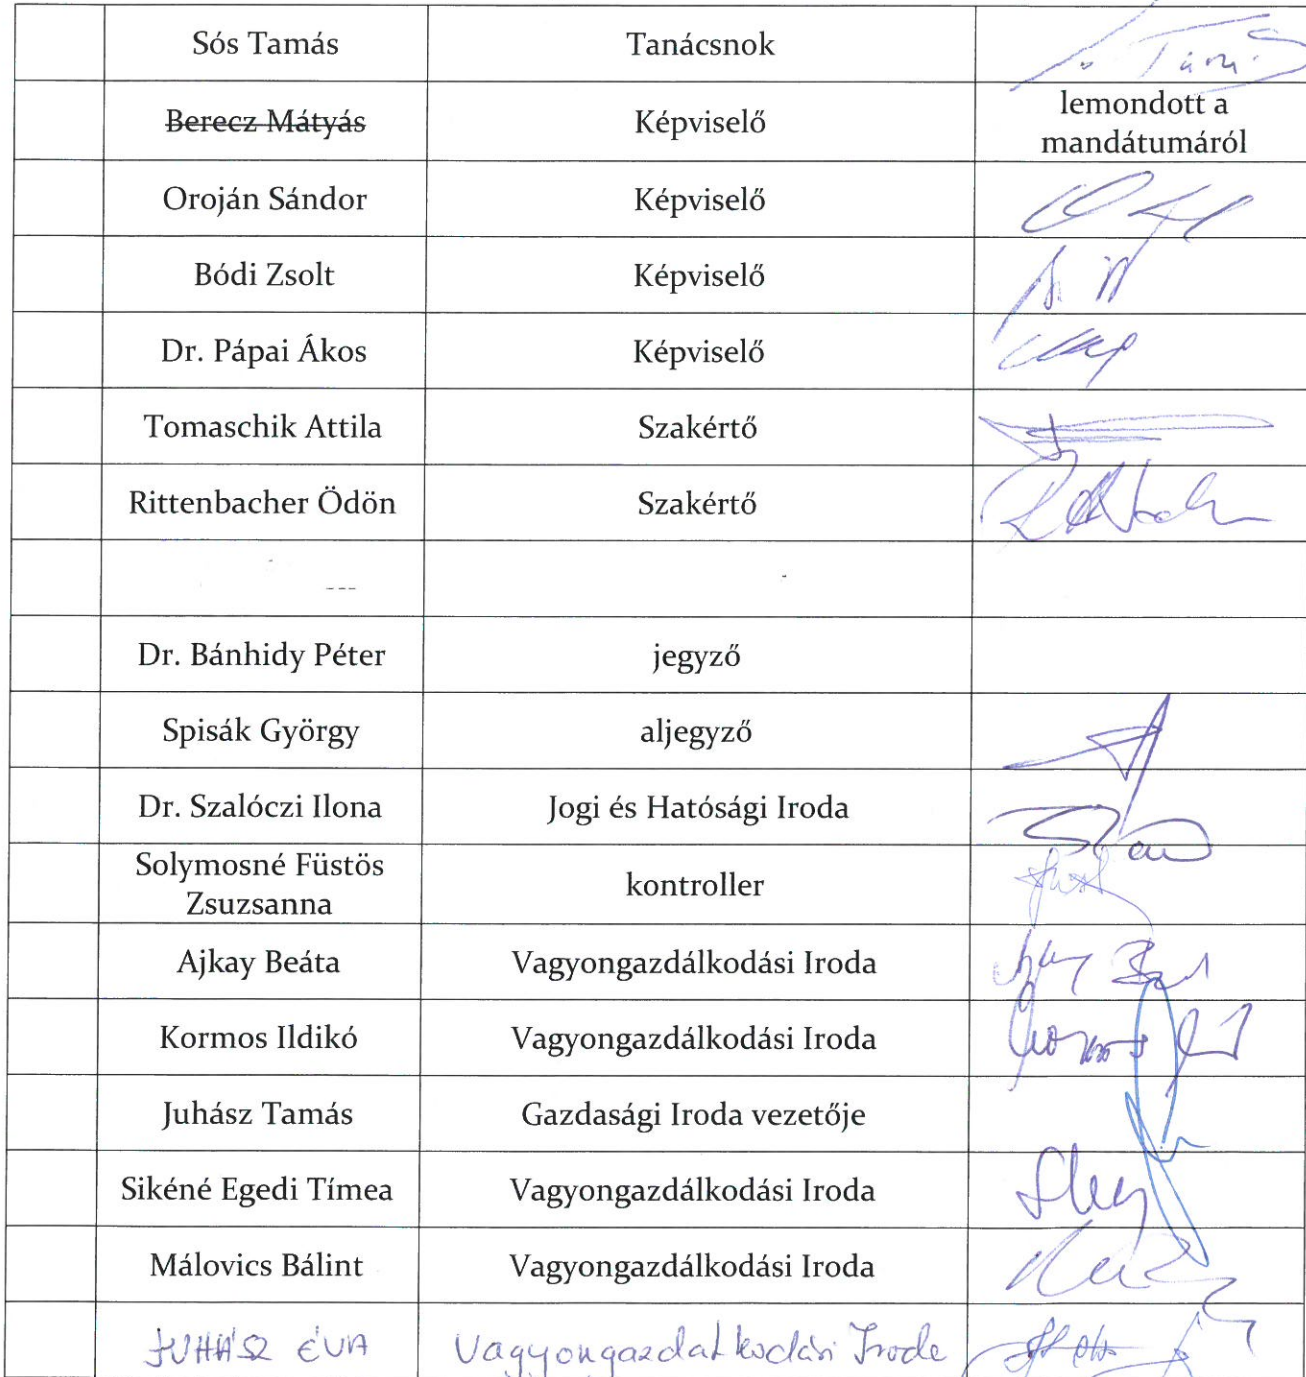 Sós Tamás Tanácsnok
Berecz Mátyás Képviselő lemondott a
mandátumáról
Oroján Sándor Képviselő
Bódi Zsolt Képviselő
Dr. Pápai Ákos Képviselő
Tomaschik Attila Szakértő
Rittenbacher Ödön Szakértő
---
Dr. Bánhidy Péter jegyző
Spisák György aljegyző
Dr. Szalóczi Ilona Jogi és Hatósági Iroda
Solymosné Füstös
Zsuzsanna kontroller
Ajkay Beáta Vagyongazdálkodási Iroda
Kormos Ildikó Vagyongazdálkodási Iroda
Juhász Tamás Gazdasági Iroda vezetője
Sikéné Egedi Tímea Vagyongazdálkodási Iroda
Málovics Bálint Vagyongazdálkodási Iroda
JUHÁSZ ÉVA Vagyongazdálkodási Iroda